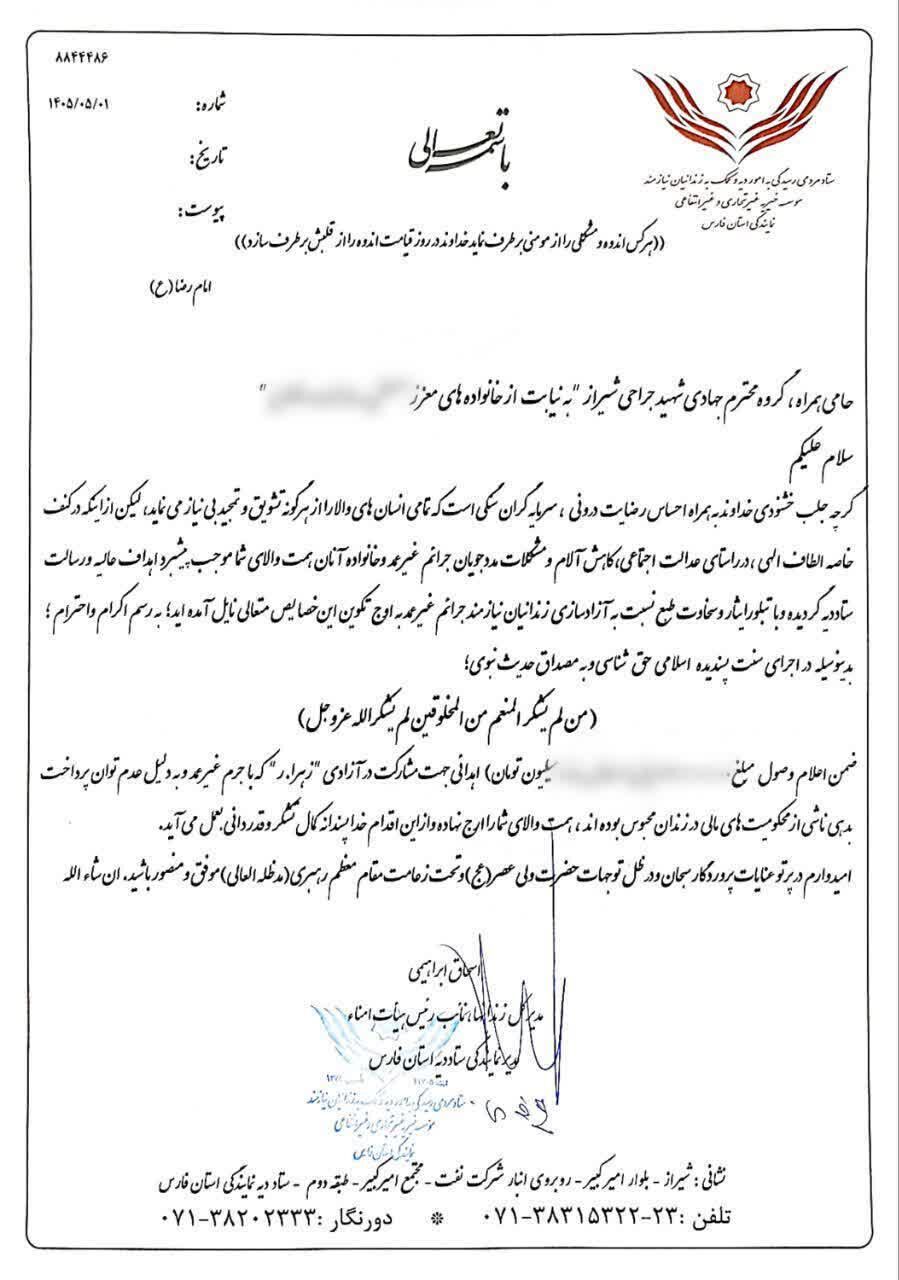 ۸۸۴۴۴۸۶
شماره:
۱۴۰۵/۰۵/۰۱
تاریخ:
پیوست:
باسمه تعالی
ستاد مردمی رسیدگی به امور دیه و کمک به زندانیان نیازمند
موسسه خیریه غیرتجاری و غیرانتفاعی
نمایندگی استان فارس
((هرکس اندوه و مشکلی را از مومنی برطرف نماید خداوند در روز قیامت اندوه را از قلبش برطرف سازد))
امام رضا (ع)
حامی همراه ، گروه محترم جهادی شهید جراحی شیراز "به نیابت از خانواده های معزز "
سلام علیکم
گرچه جلب خشنودی خداوند به همراه احساس رضایت درونی ، سرمایه گران سنگی است که تمامی انسان های والا را از هرگونه تشویق و تمجید بی نیاز می نماید، لیکن از اینکه در کنف
خاصه الطاف الهی ، در راستای عدالت اجتماعی، کاهش آلام و مشکلات مددجویان جرائم غیرعمد و خانواده آنان همت والای شما موجب پیشبرد اهداف عالیه و رسالت
ستاد دیه گردیده و با تبلور ایثار و سخاوت طبع نسبت به آزادسازی زندانیان نیازمند جرائم غیرعمد به اوج تکوین این خصایص متعالی نایل آمده اید؛ به رسم اکرام و احترام ؛
بدینوسیله در اجرای سنت پسندیده اسلامی حق شناسی و به مصداق حدیث نبوی؛
(من لم یشکر المنعم من المخلوقین لم یشکر الله عزوجل)
ضمن اعلام وصول مبلغ میلیون تومان) اهدائی جهت مشارکت در آزادی "زهرا.ر" که با جرم غیرعمد و به دلیل عدم توان پرداخت
بدهی ناشی از محکومیت های مالی در زندان محبوس بوده اند ، همت والای شما را ارج نهاده و از این اقدام خداپسندانه کمال تشکر و قدردانی بعمل می آید.
امیدوارم در پرتو عنایات پروردگار سبحان و در ظل توجهات حضرت ولی عصر(عج) و تحت زعامت مقام معظم رهبری(مدظله العالی) موفق و منصور باشید. ان شاء الله
اسحاق ابراهیمی
مدیرکل زندانها، نایب رئیس هیأت امناء
و مدیر نمایندگی ستاد دیه استان فارس
ستاد مردمی رسیدگی به امور دیه و کمک به زندانیان نیازمند
موسسه خیریه غیرتجاری و غیرانتفاعی
نمایندگی استان فارس
نشانی : شیراز - بلوار امیرکبیر - روبروی انبار شرکت نفت - مجتمع امیرکبیر - طبقه دوم - ستاد دیه نمایندگی استان فارس
تلفن : ۲۳-۳۸۳۱۵۳۲۲-۰۷۱ * دورنگار : ۳۸۲۰۲۳۳۳-۰۷۱